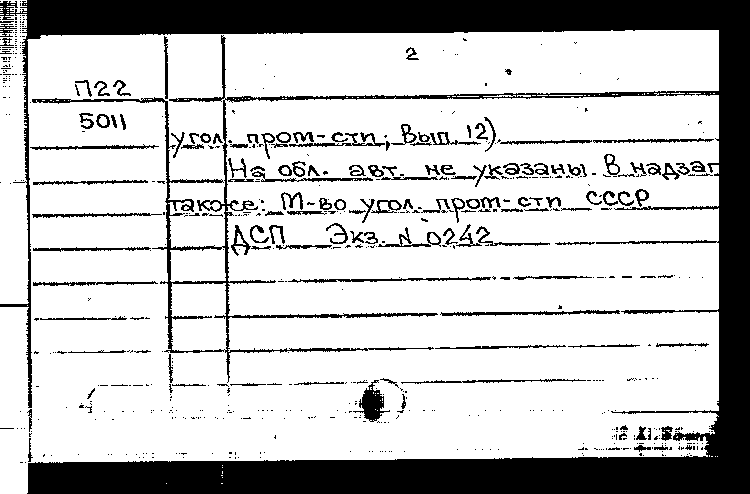 2
П22
5011
угол. пром-сти; Вып. 12)
На обл. авт. не указаны. В надзаг
также: М-во угол. пром-сти СССР
ДСП Экз. N 0242